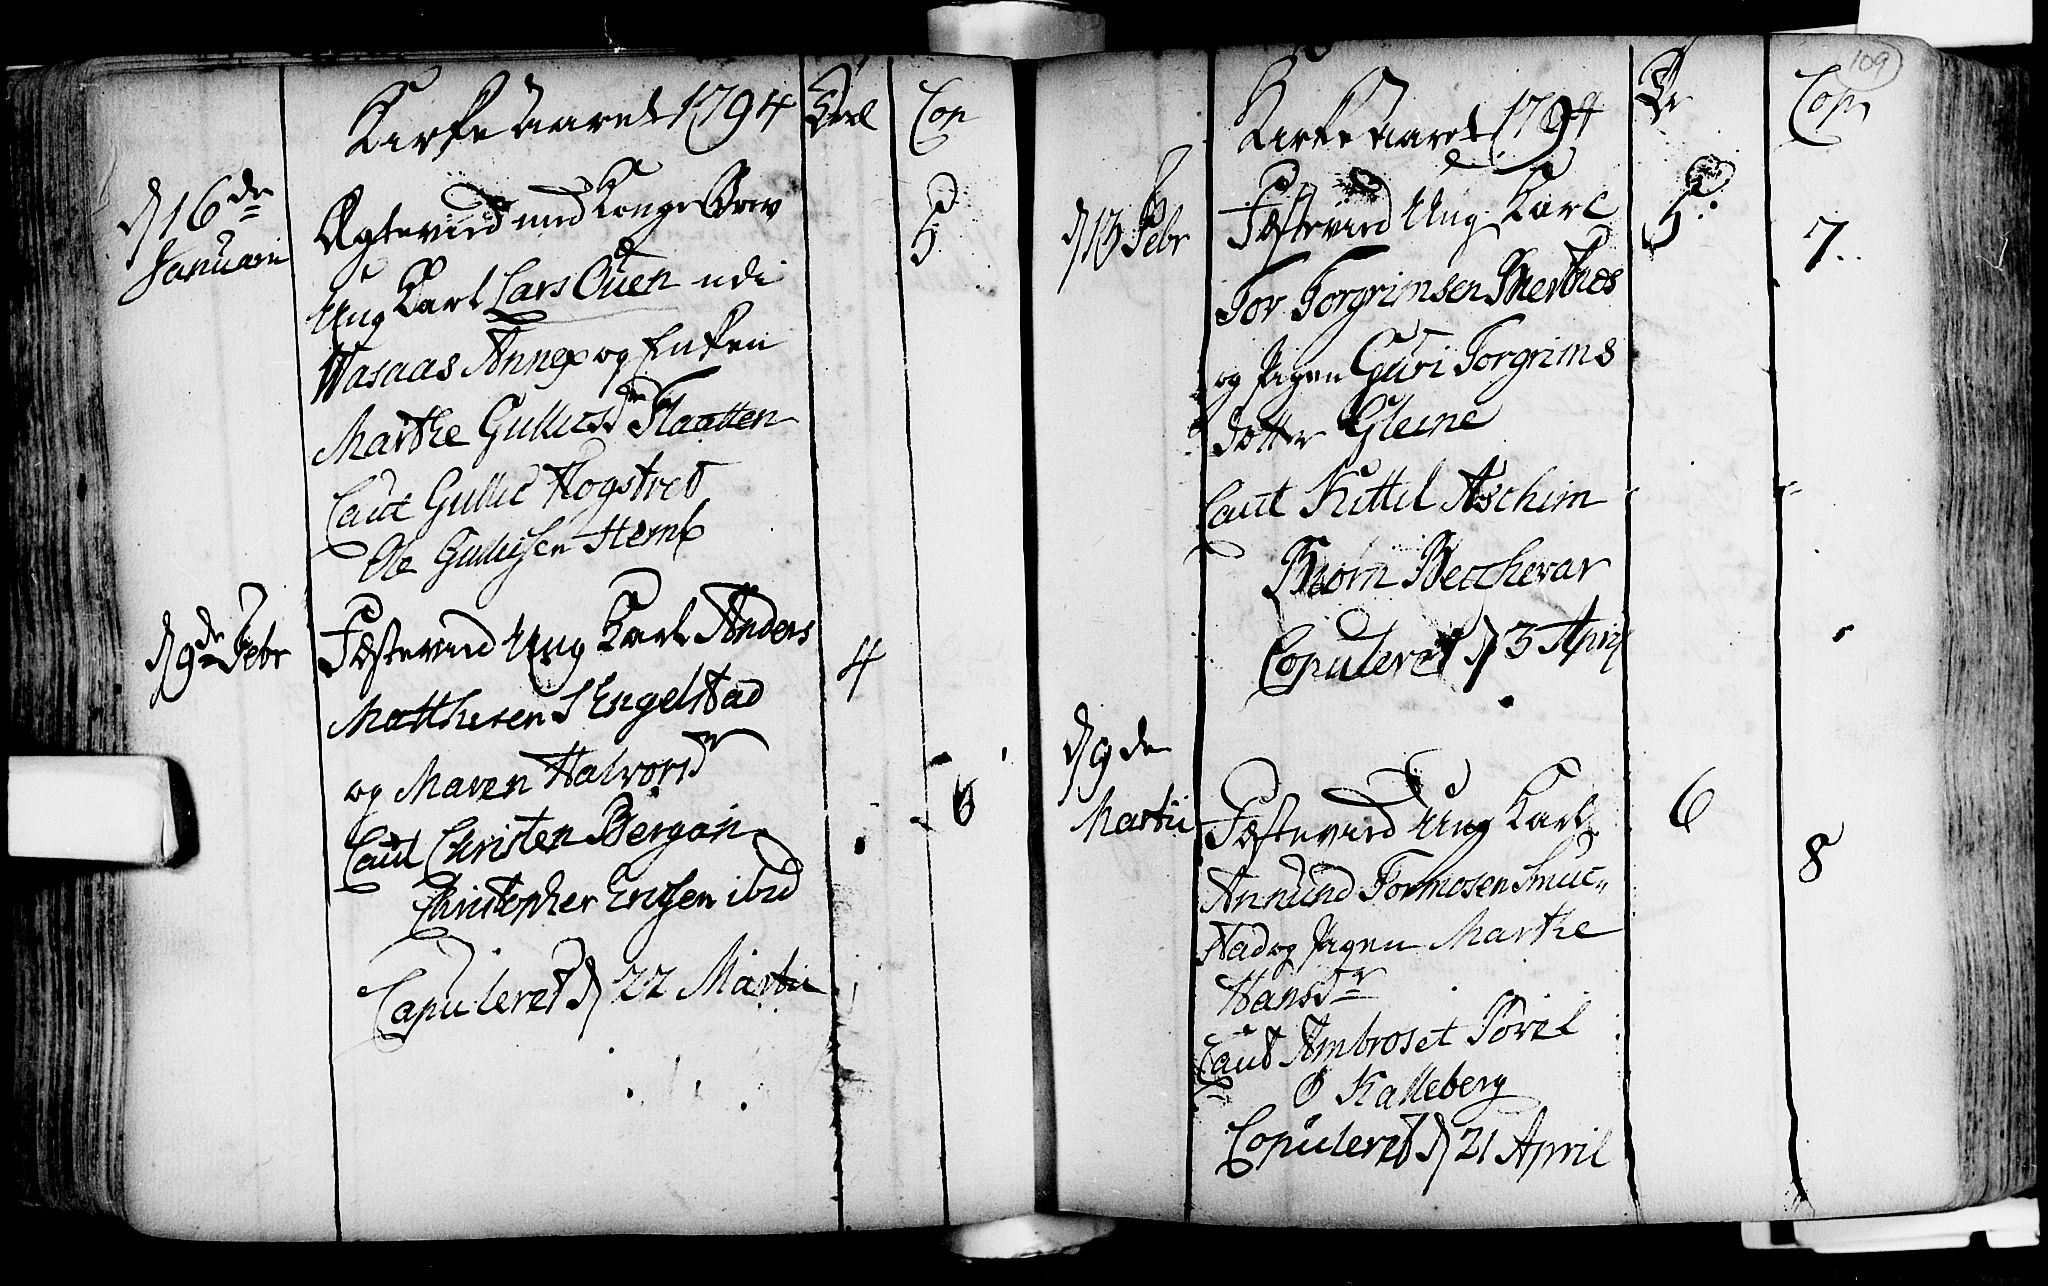 Kirke Aaret 1794
Trol
Cop
d 16de
Januarii
Ægtevied med Konge Brev
5
Ung Karl Lars Ouen udi
Wasaas Annex og Enken
Marthe Gulluisdr Flaatten
Caut Gullic Hogstvet
Ole Gullicsen Stemb
d 9de Febr
Fæstevied Ung Karl Anders
4
Matthesen Engelstad
og Maren Halvorsdr
6
Caut Christen Bergan
Christopher Erichsen ibid
Copuleret d 22 Martii
109
Kirke Aaret 1794
Tr
Cop
d 13 Febr
Fæstevied Ung Karl
5
7
Tor Torgrimsen
og Pigen Guri Torgrims
dotter Gleine
Caut Kittil Aschim
Biørn Bechevar
Copuleret d 3 April
d 9de
Martii
Fæstevied Ung Karl
6
8
Annund Tormosen Smuc-
stad og Pigen Marthe
Hansdr
Caut Ambroset
O Kalleberg
Copuleret d 21 April